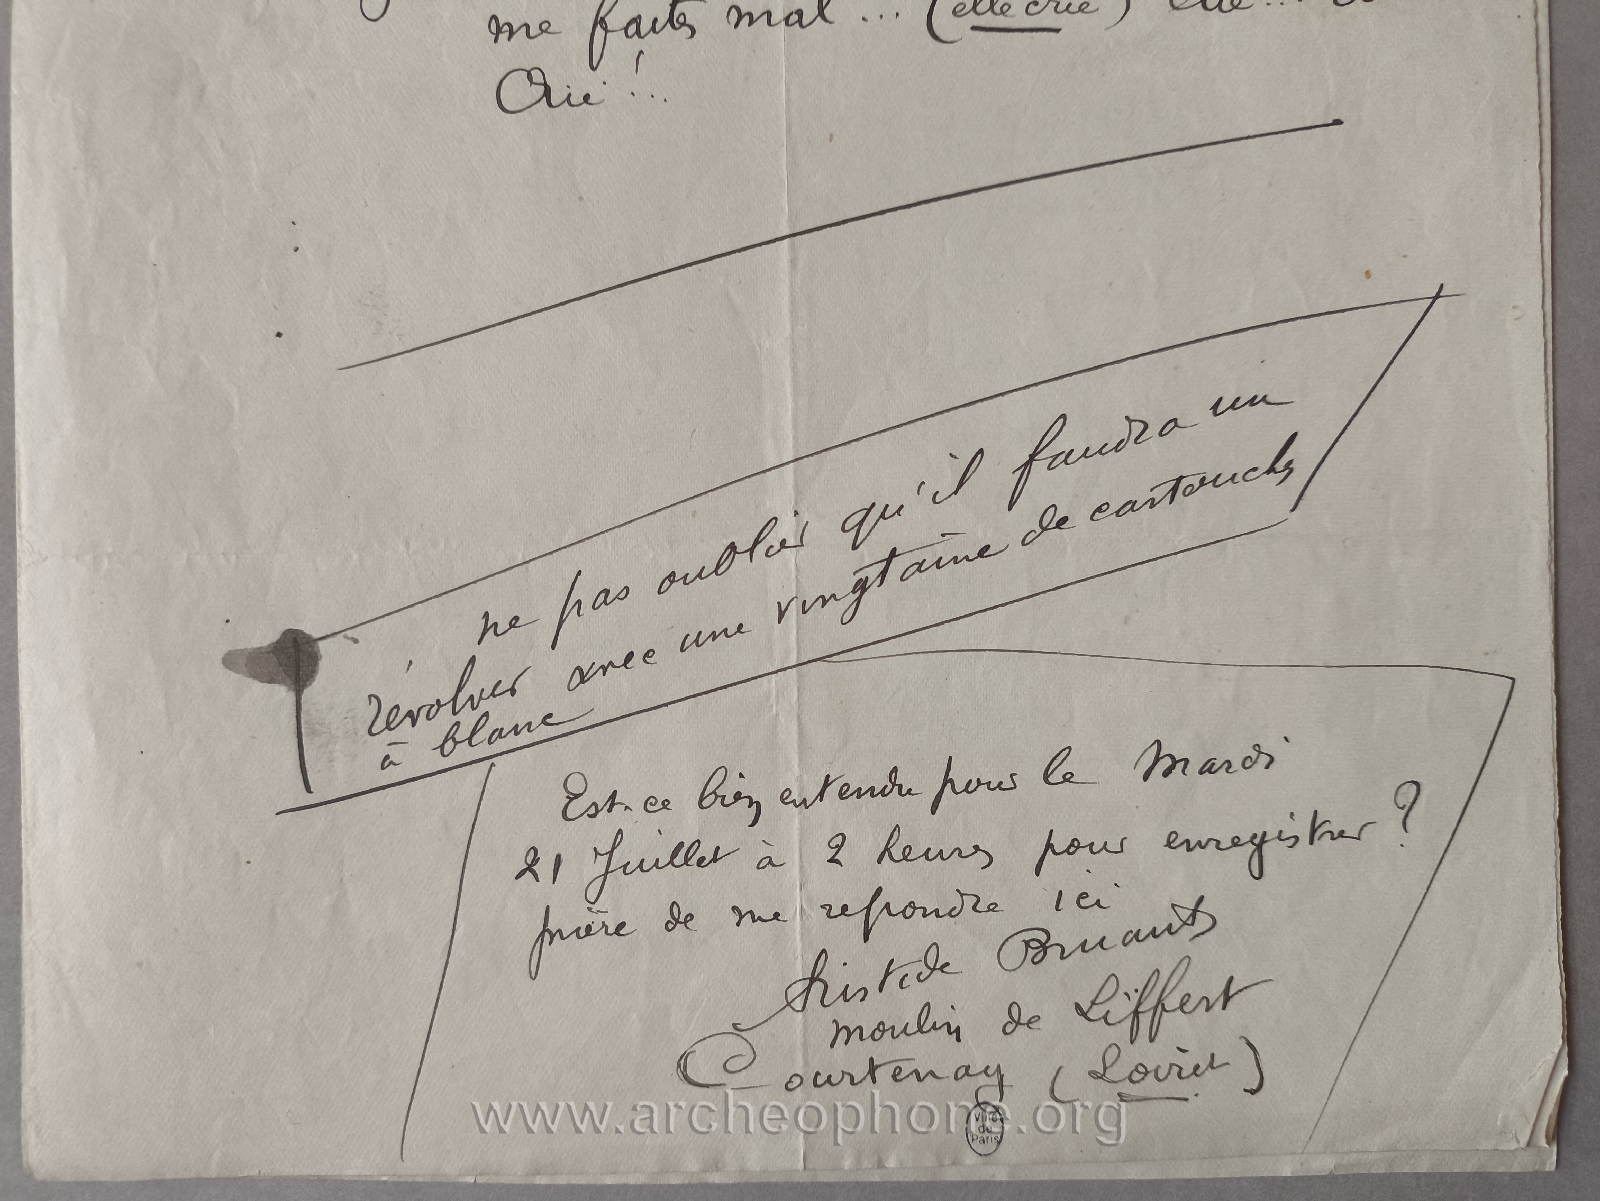 me faites mal... (elle crie)
Oui!...
ne pas oublier qu'il faudra un
révolver avec une vingtaine de cartouches
à blanc
Est-ce bien entendu pour le Mardi
21 Juillet à 2 heures pour enregistrer?
prière de me repondre ici
Aristide Bruant
moulin de Liffert
Courtenay (Loiret)
www.archeophone.org
Ville
de
Paris